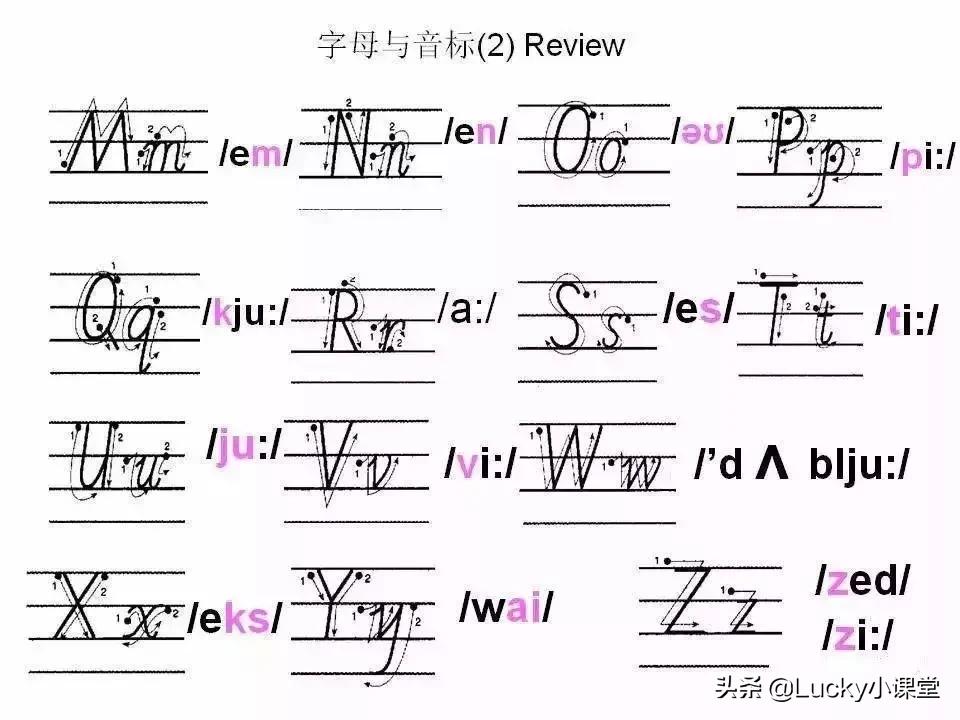 字母与音标(2) Review
Mm /em/ Nn /en/ Oo /əʊ/ Pp /pi:/
Qq /kju:/ Rr /a:/ Ss /es/ Tt /ti:/
Uu /ju:/ Vv /vi:/ Ww /'d Λ blju:/
Xx /eks/ Yy /wai/ Zz /zed/
/zi:/
头条 @Lucky小课堂